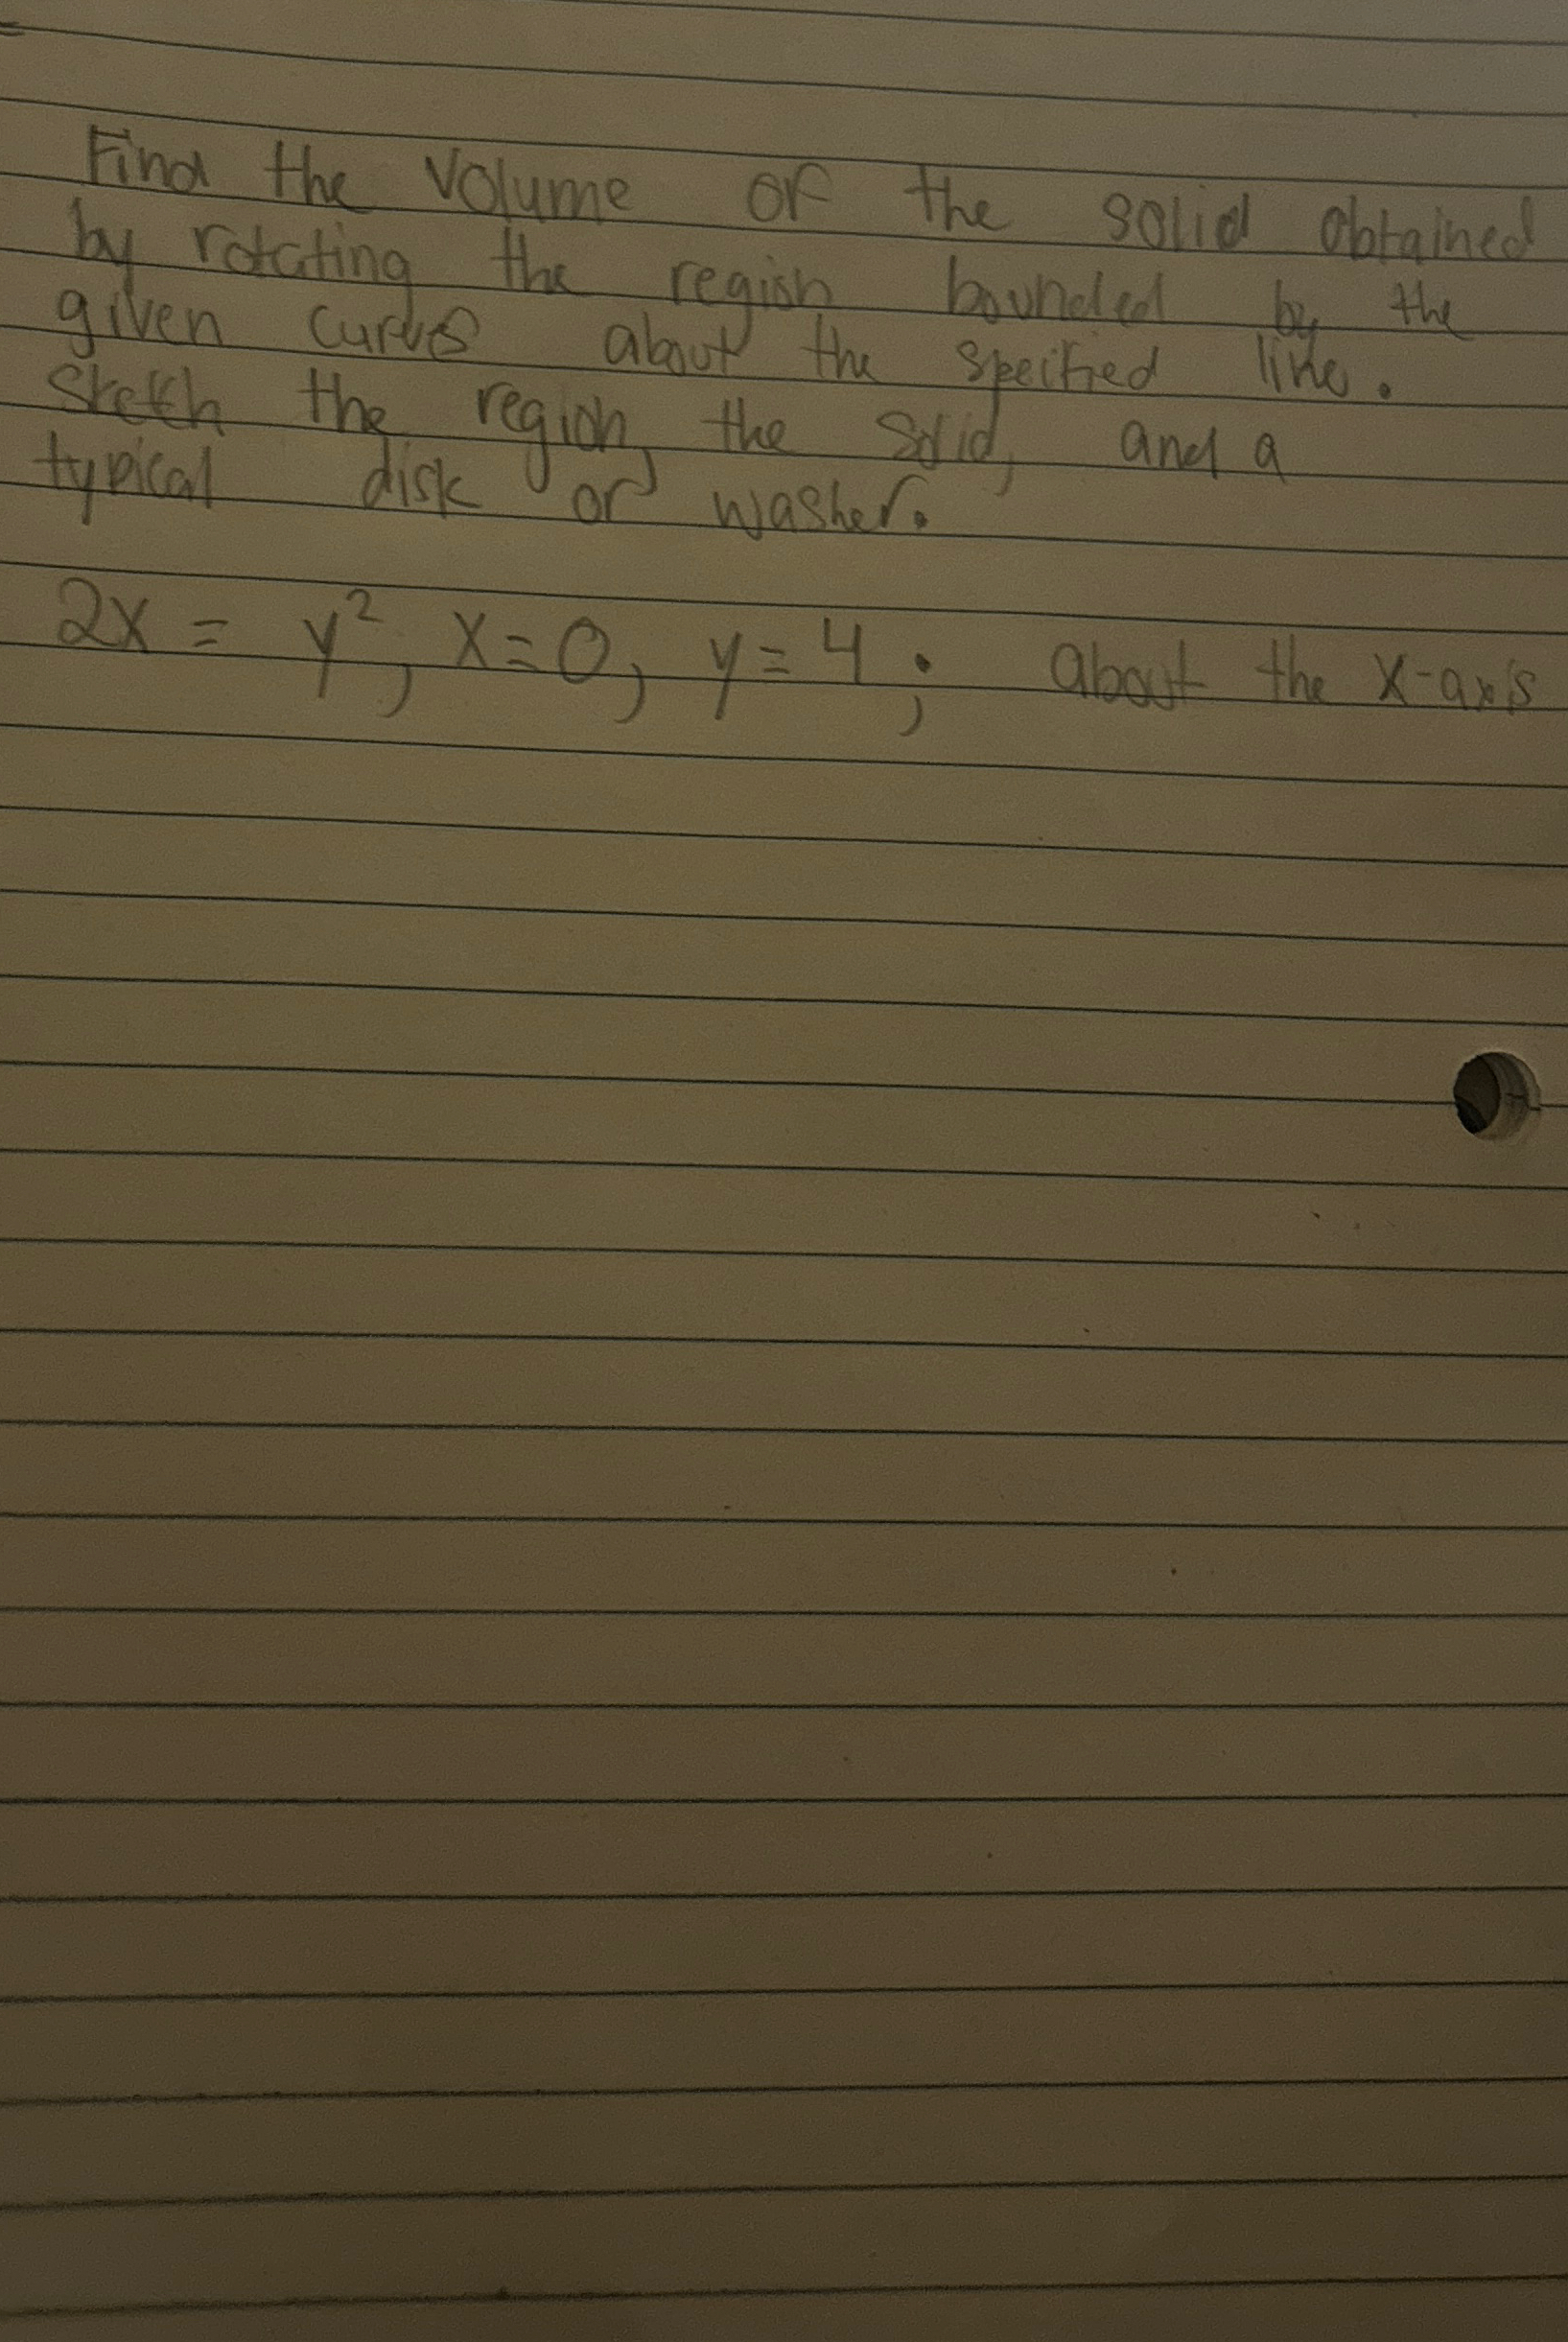 Find the volume of the solid obtained
by rotating the region bounded by the
given curves about the specified line.
Sketch the region, the solid, and a
typical disk or washer.
2x = y², x=0, y=4; about the x-axis